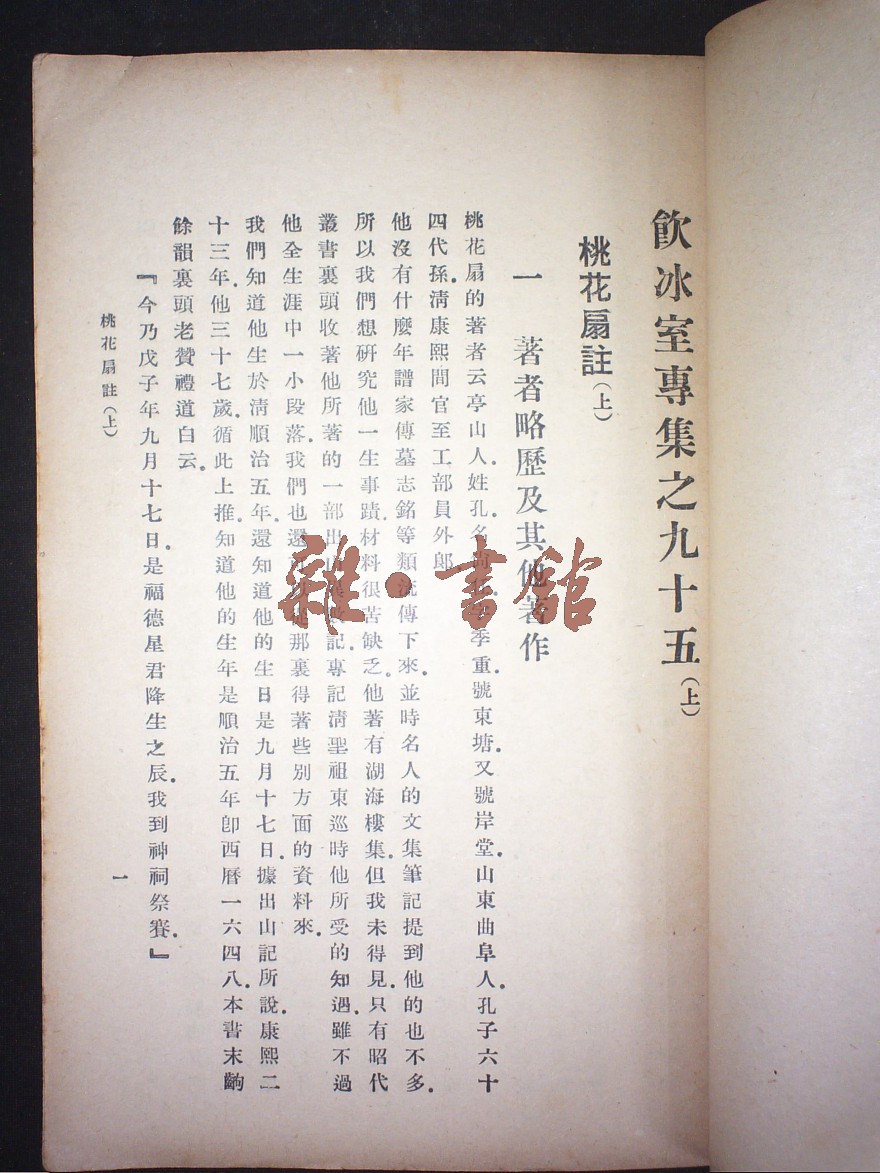 飮冰室專集之九十五(上)
桃花扇註(上)
一 著者略歷及其他著作
桃花扇的著者云亭山人姓孔名尚任字季重號東塘又號岸堂山東曲阜人孔子六十
四代孫淸康熙間官至工部員外郞
他沒有什麼年譜家傳墓志銘等類流傳下來並時名人的文集筆記提到他的也不多
所以我們想研究他一生事蹟材料很苦缺乏他著有湖海樓集但我未得見只有昭代
叢書裏頭收著他所著的一部出山異數記專記淸聖祖東巡時他所受的知遇雖不過
他全生涯中一小段落我們也還可以從那裏得著些別方面的資料來
我們知道他生於淸順治五年還知道他的生日是九月十七日據出山記所說康熙二
十三年他三十七歲循此上推知道他的生年是順治五年卽西曆一六四八本書末齣
餘韻裏頭老贊禮道白云
『今乃戊子年九月十七日是福德星君降生之辰我到神祠祭賽』
桃花扇註(上)
一
雜·書館